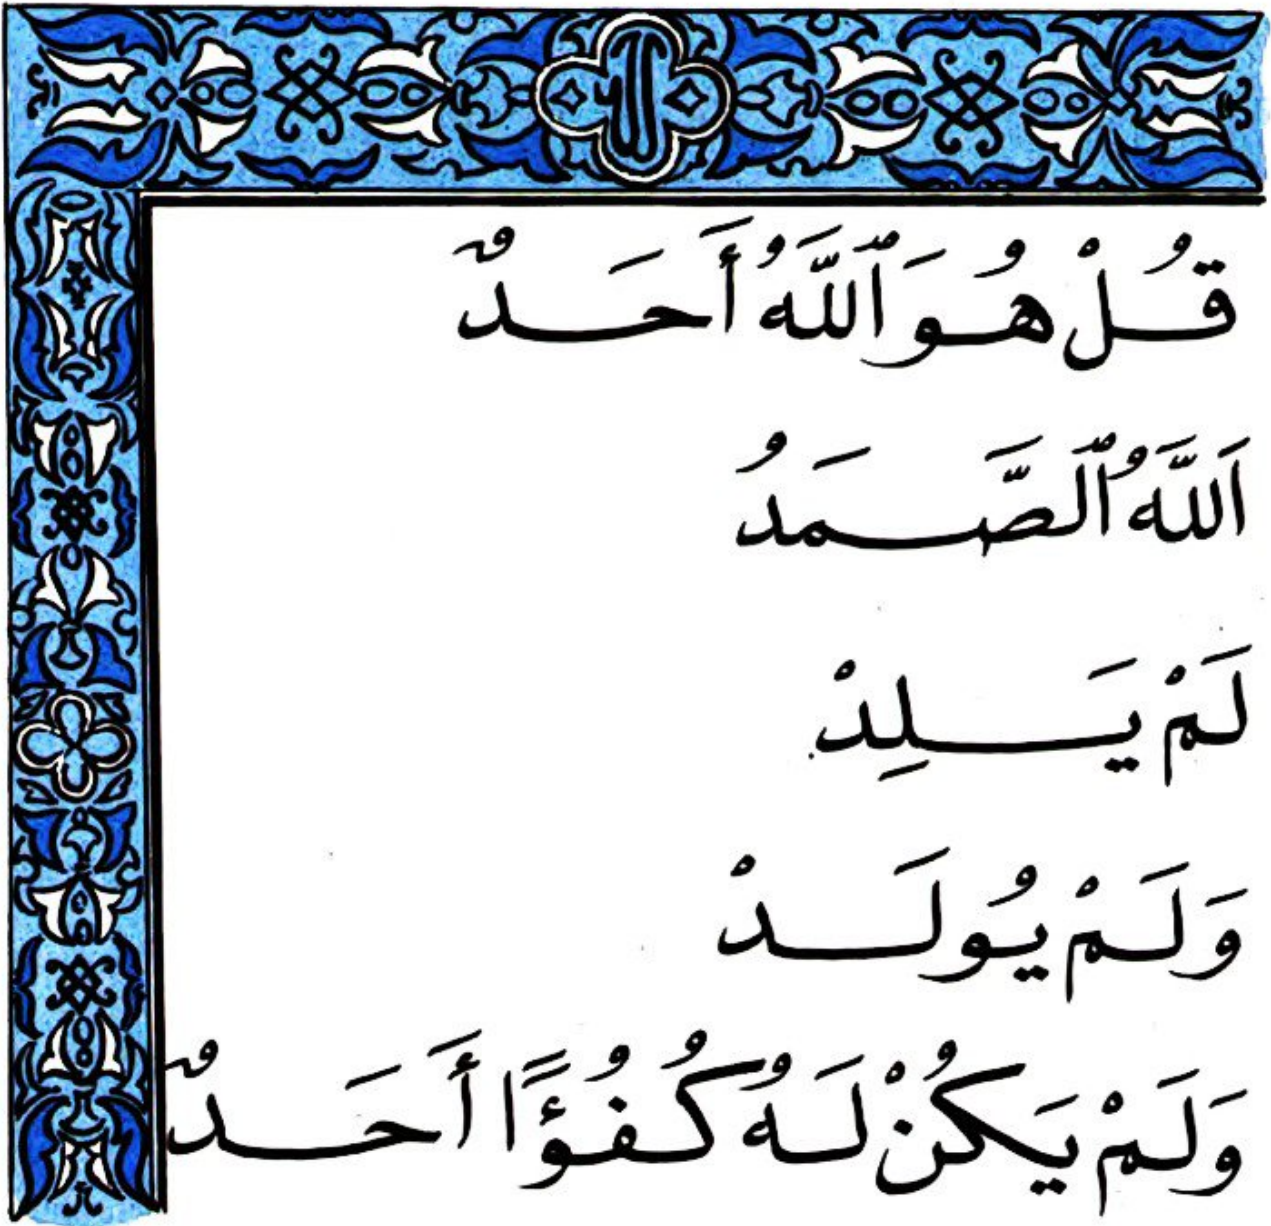 قُلْ هُوَ ٱللَّهُ أَحَدٌ
اَللَّهُ ٱلصَّمَدُ
لَمْ يَلِدْ
وَلَمْ يُولَدْ
وَلَمْ يَكُنْ لَهُ كُفُؤًا أَحَدٌ